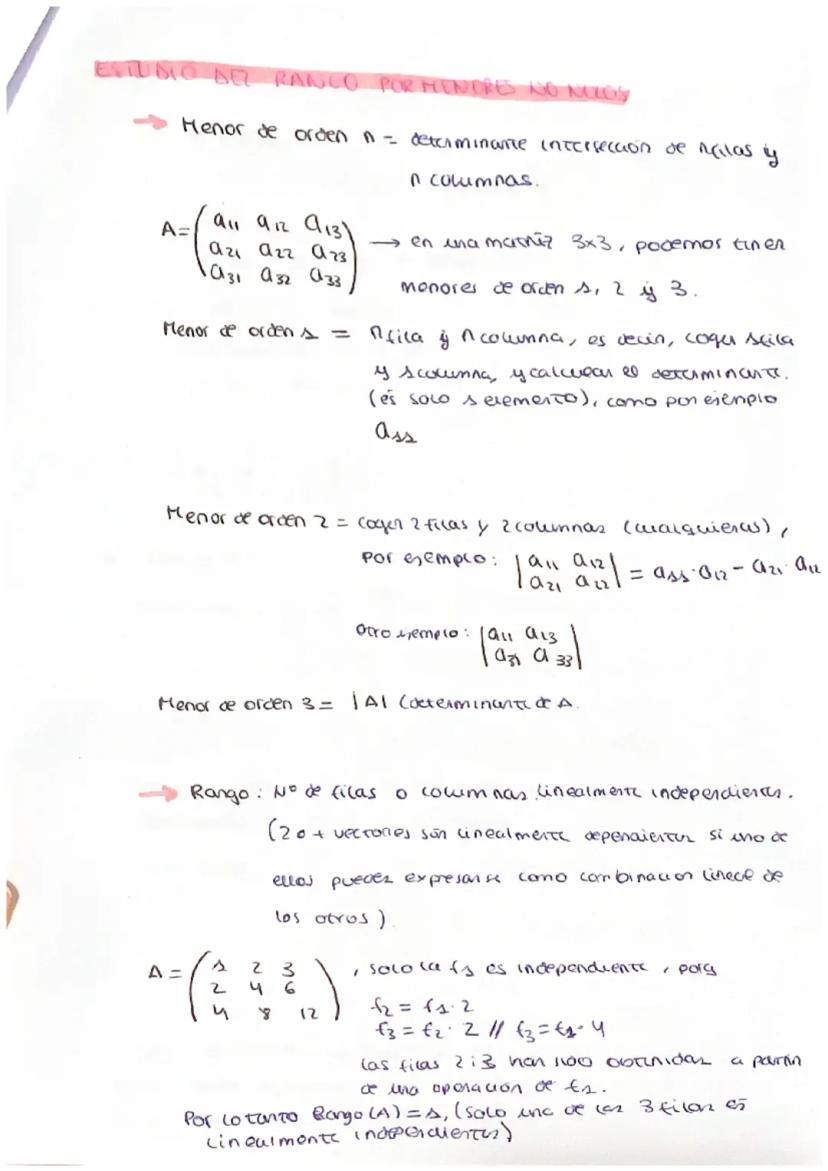 ESTUDIO DEL RANGO POR MENORES NO NULOS
→ Menor de orden n = determinante intersección de n filas y
n columnas.
A = ( a11 a12 a13
a21 a22 a23
a31 a32 a33 ) → en una matriz 3x3, podemos tener
menores de orden 1, 2 y 3.
Menor de orden 1 = n fila y n columna, es decir, coger 1 fila
y 1 columna, y calcular el determinante.
(es solo 1 elemento), como por ejemplo
a11
Menor de orden 2 = coger 2 filas y 2 columnas (cualquieras),
por ejemplo: | a11 a12
a21 a22 | = a11 · a12 - a21 · a12
Otro ejemplo: | a11 a13
a31 a33 |
Menor de orden 3 = |A| (determinante de A.
→ Rango: Nº de filas o columnas linealmente independientes.
(2 o + vectores son linealmente dependientes si uno de
ellos puedes expresarse como combinacion lineal de
los otros)
A = ( 1 2 3
2 4 6
4 8 12 ) , solo la f1 es independiente, porq
f2 = f1 · 2
f3 = f2 · 2 // f3 = f1 · 4
Las filas 2 i 3 han sido obtenidas a partir
de una operación de f1.
Por lo tanto Rango (A) = 1, (solo una de las 3 filas es
linealmente independientes)